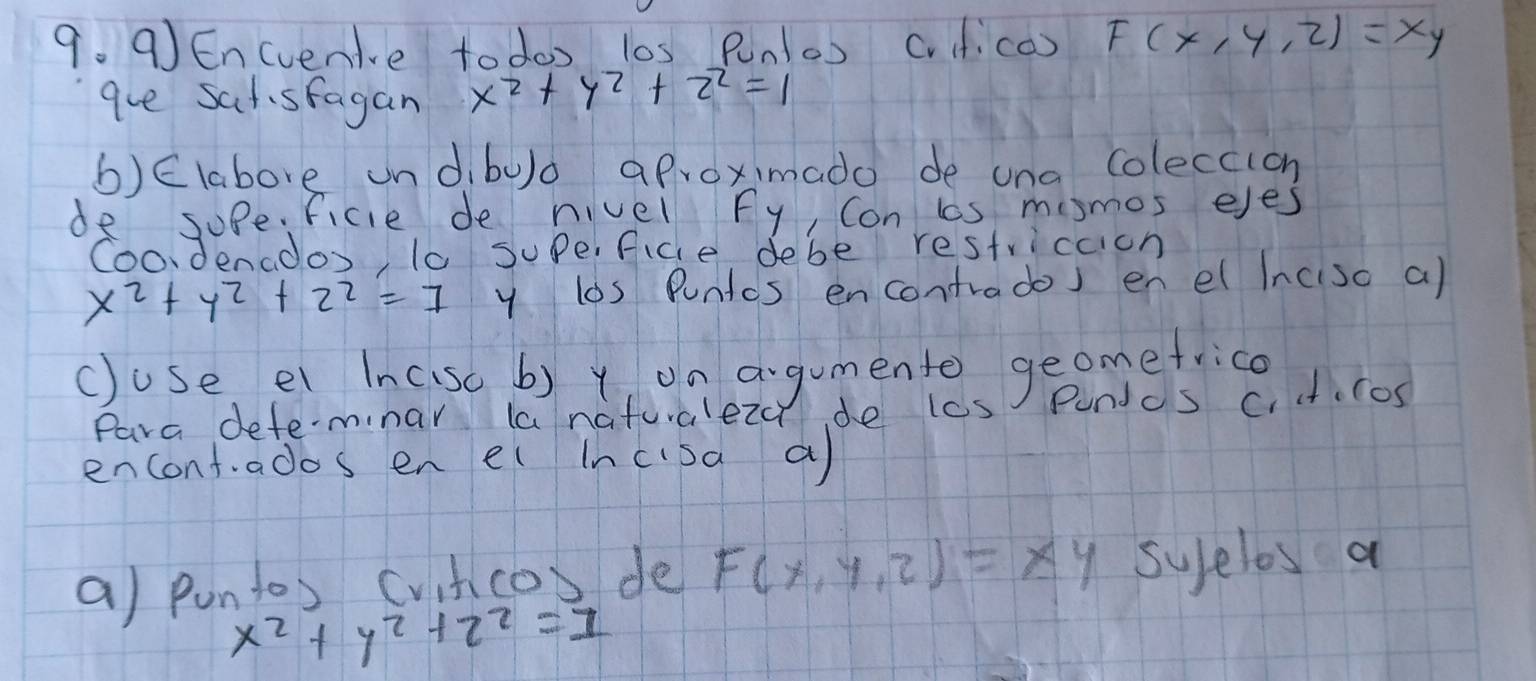 9. a) Encuentre todos los Puntos Criticos F(x, y, z) = xy
que satisfagan x² + y² + z² = 1
b) Elabore un dibujo aproximado de una colección
de superficie de nivel Fy, Con los mismos ejes
Coordenados, la superficie debe restricción
x² + y² + z² = 1 y los Puntos encontrados en el Inciso a)
c) use el Inciso b) y un argumento geometrico
Para determinar la naturaleza de los Puntos criticos
encontrados en el Incisa a)
a) Puntos Criticos de F(x, y, z) = xy sujetos a
x² + y² + z² = 1